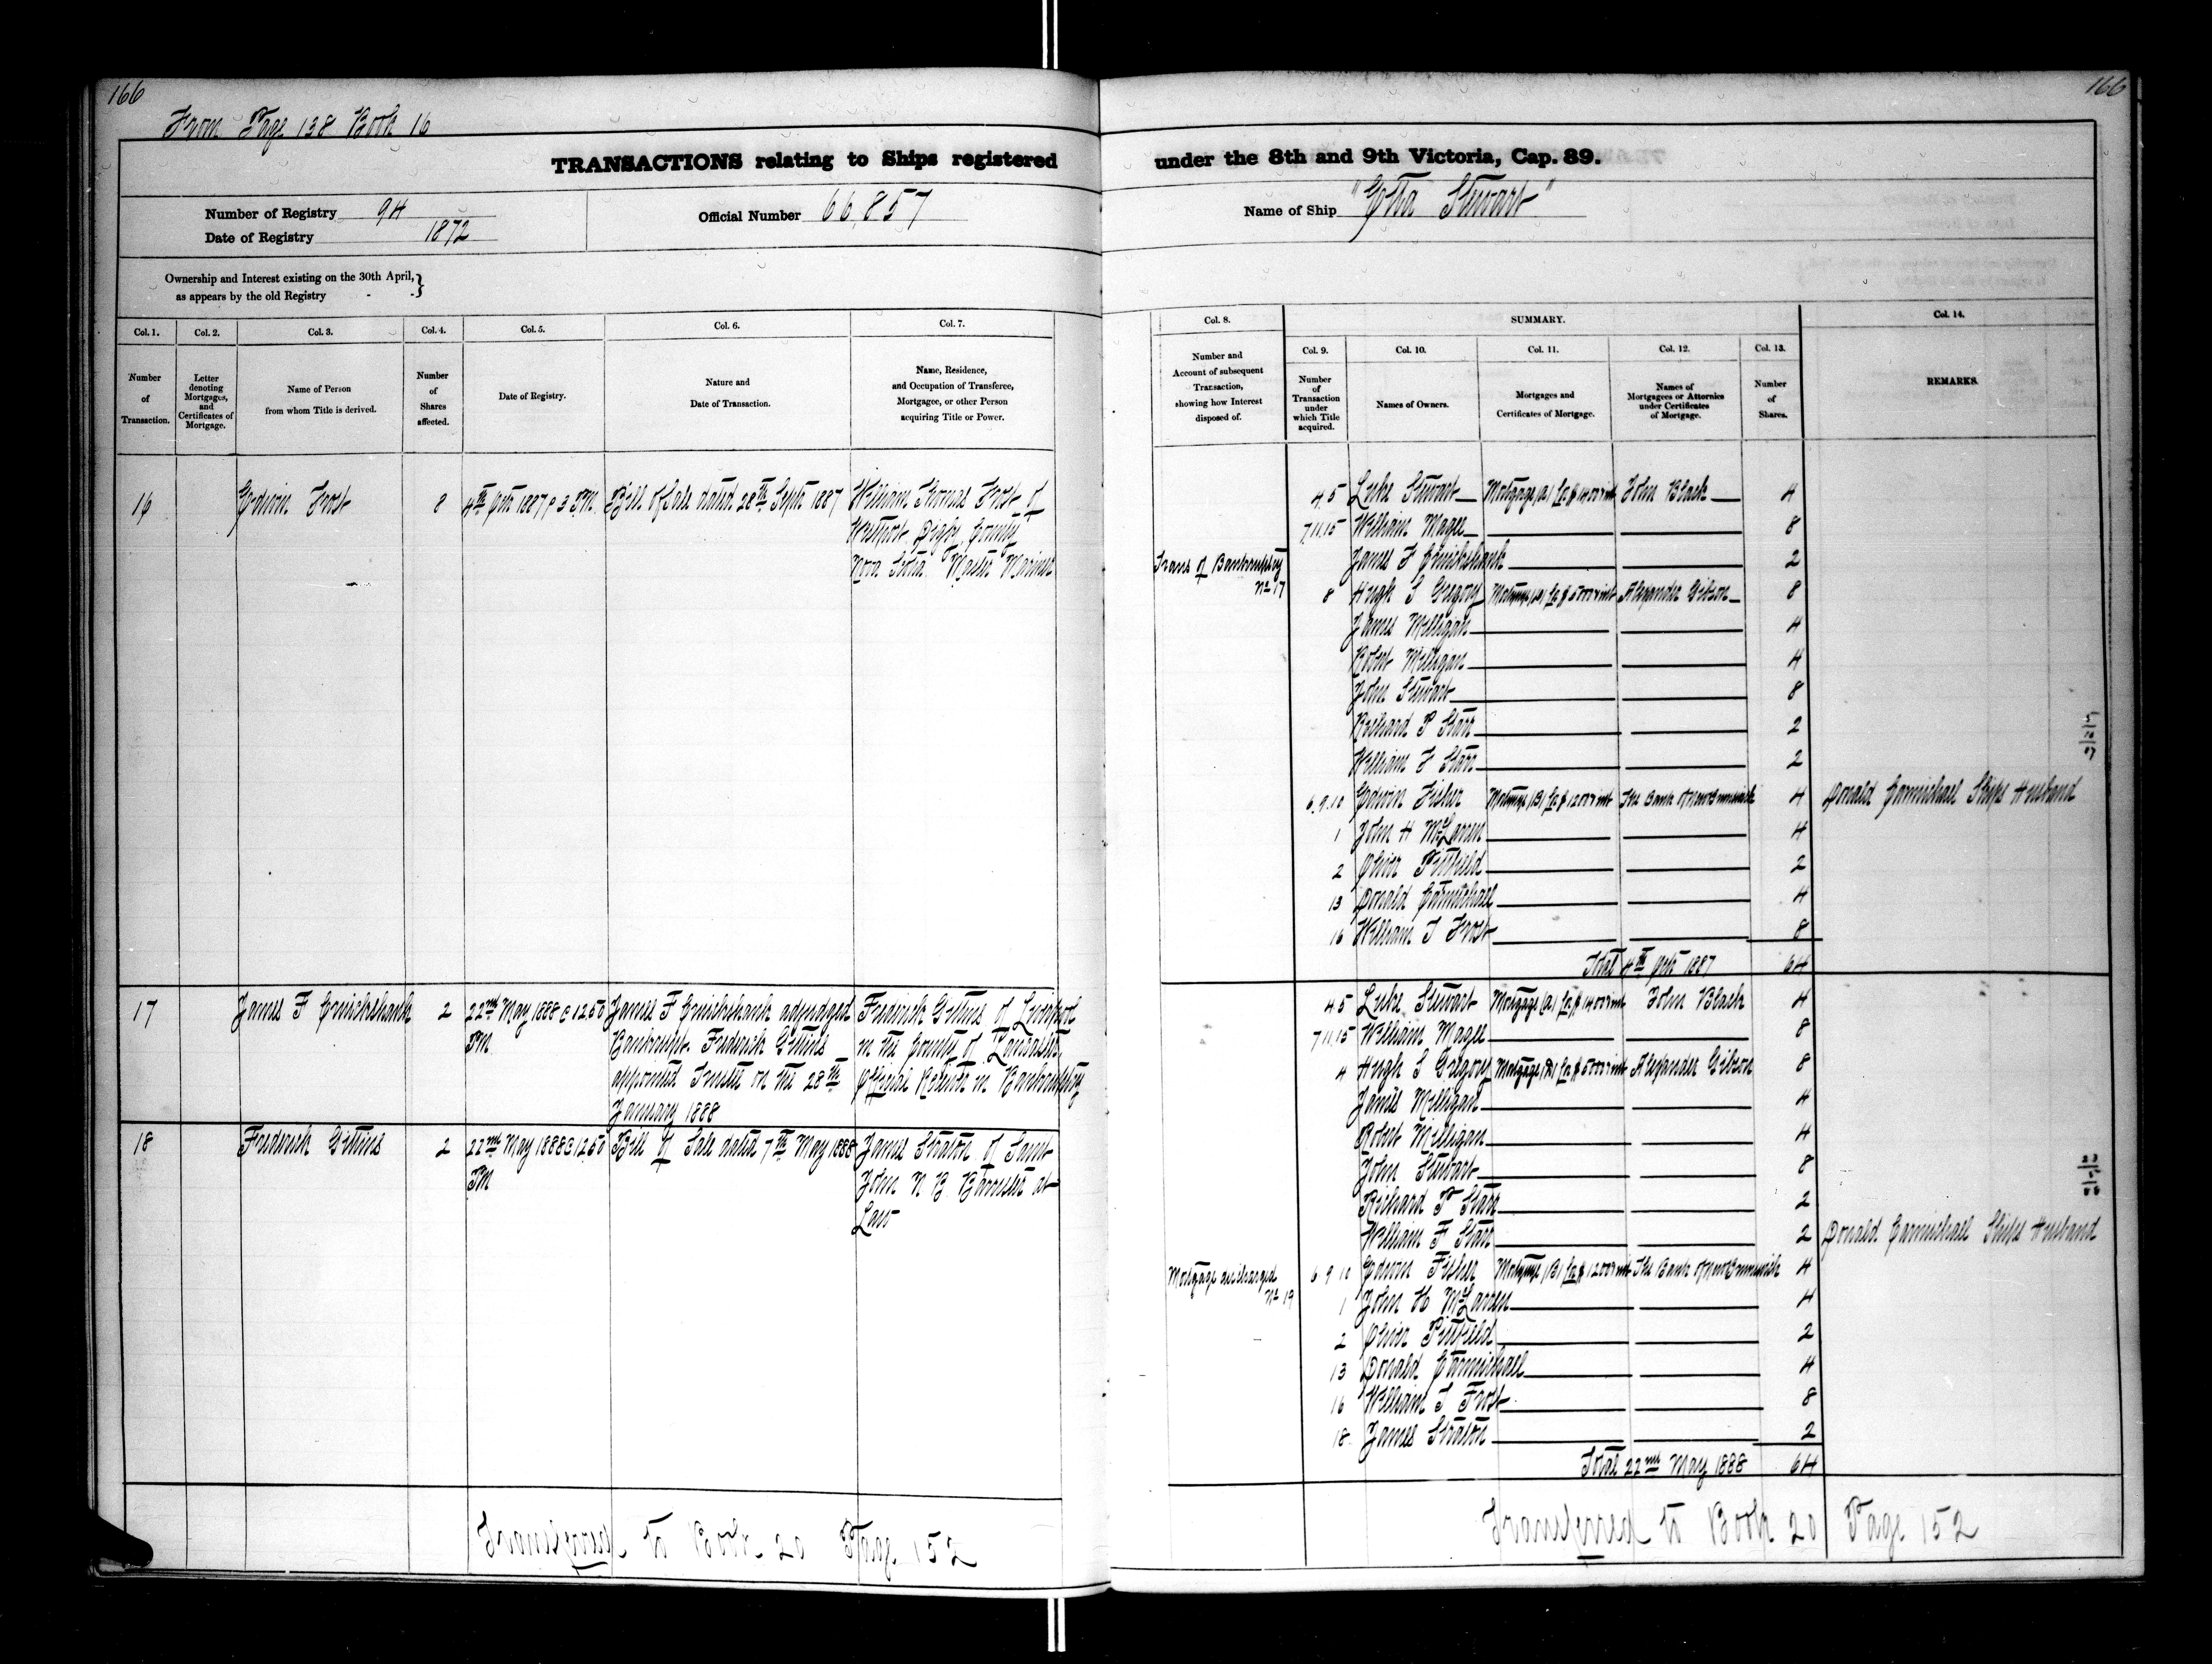 166
166
From Page 138 Book 16
TRANSACTIONS relating to Ships registered under the 8th and 9th Victoria, Cap. 89.
Number of Registry 94
Date of Registry 1872
Official Number 66,857
Name of Ship "Etta Stewart"
Ownership and Interest existing on the 30th April,
as appears by the old Registry
Col. 1.
Number
of
Transaction.
Col. 2.
Letter
denoting
Mortgages,
and
Certificates of
Mortgage.
Col. 3.
Name of Person
from whom Title is derived.
Col. 4.
Number
of
Shares
affected.
Col. 5.
Date of Registry.
Col. 6.
Nature and
Date of Transaction.
Col. 7.
Name, Residence,
and Occupation of Transferee,
Mortgagee, or other Person
acquiring Title or Power.
Col. 8.
Number and
Account of subsequent
Transaction,
showing how Interest
disposed of.
SUMMARY.
Col. 9.
Number
of
Transaction
under
which Title
acquired.
Col. 10.
Names of Owners.
Col. 11.
Mortgages and
Certificates of Mortgage.
Col. 12.
Names of
Mortgagees or Attornies
under Certificates
of Mortgage.
Col. 13.
Number
of
Shares.
Col. 14.
REMARKS.
16 Edwin Frost 8 4th Octr 1887 @ 3 PM. Bill of Sale dated 28th Septr 1887 William Thomas Frost of
Westport Digby County
Nova Scotia Master Mariner
4 5 Luke Stewart Mortgage (A) John Black 4
7.11.15 William Magee 8
Trans of Bankruptcy
No 17
James F Cruickshank 2
8 Hugh S Gregory Alexander Gibson 8
James Milligan 4
Robert Milligan 4
John Stewart 8
Richard P Starr 2
William F Starr 2
6.9.10 Edwin Fisher Mortgage (B) The Bank of New Brunswick 4 Donald Carmichael Ships Husband
1 John H McLaren 4
2 Oliver Pittfield 2
13 Donald Carmichael 4
16 William T Frost 8
Total 4th Octr 1887 64
17 James F Cruickshank 2 22nd May 1888 @ 12 50
PM
James F Cruickshank adjudged
Bankrupt. Frederick Gittins
appointed Trustee on the 28th
January 1888
Frederick Gittins of Liverpool
in the County of Lancaster,
Official Receiver in Bankruptcy
18 Frederick Gittins 2 22nd May 1888 @ 12 50
PM
Bill of Sale dated 7th May 1888 James Straton of Saint
John N B Barrister at
Law
4 5 Luke Stewart Mortgage (A) John Black 4
7 11.15 William Magee 8
4 Hugh S Gregory Alexander Gibson 8
James Milligan 4
Robert Milligan 4
John Stewart 8
Richard P Starr 2
William F Starr 2 Donald Carmichael Ships Husband
Mortgage discharged
No 19
6 9 10 Edwin Fisher Mortgage (B) The Bank of New Brunswick 4
1 John H McLaren 4
2 Oliver Pittfield 2
13 Donald Carmichael 4
16 William T Frost 8
18 James Straton 2
Total 22nd May 1888 64
Transferred to Book 20 Page 152
Transferred to Book 20 Page 152